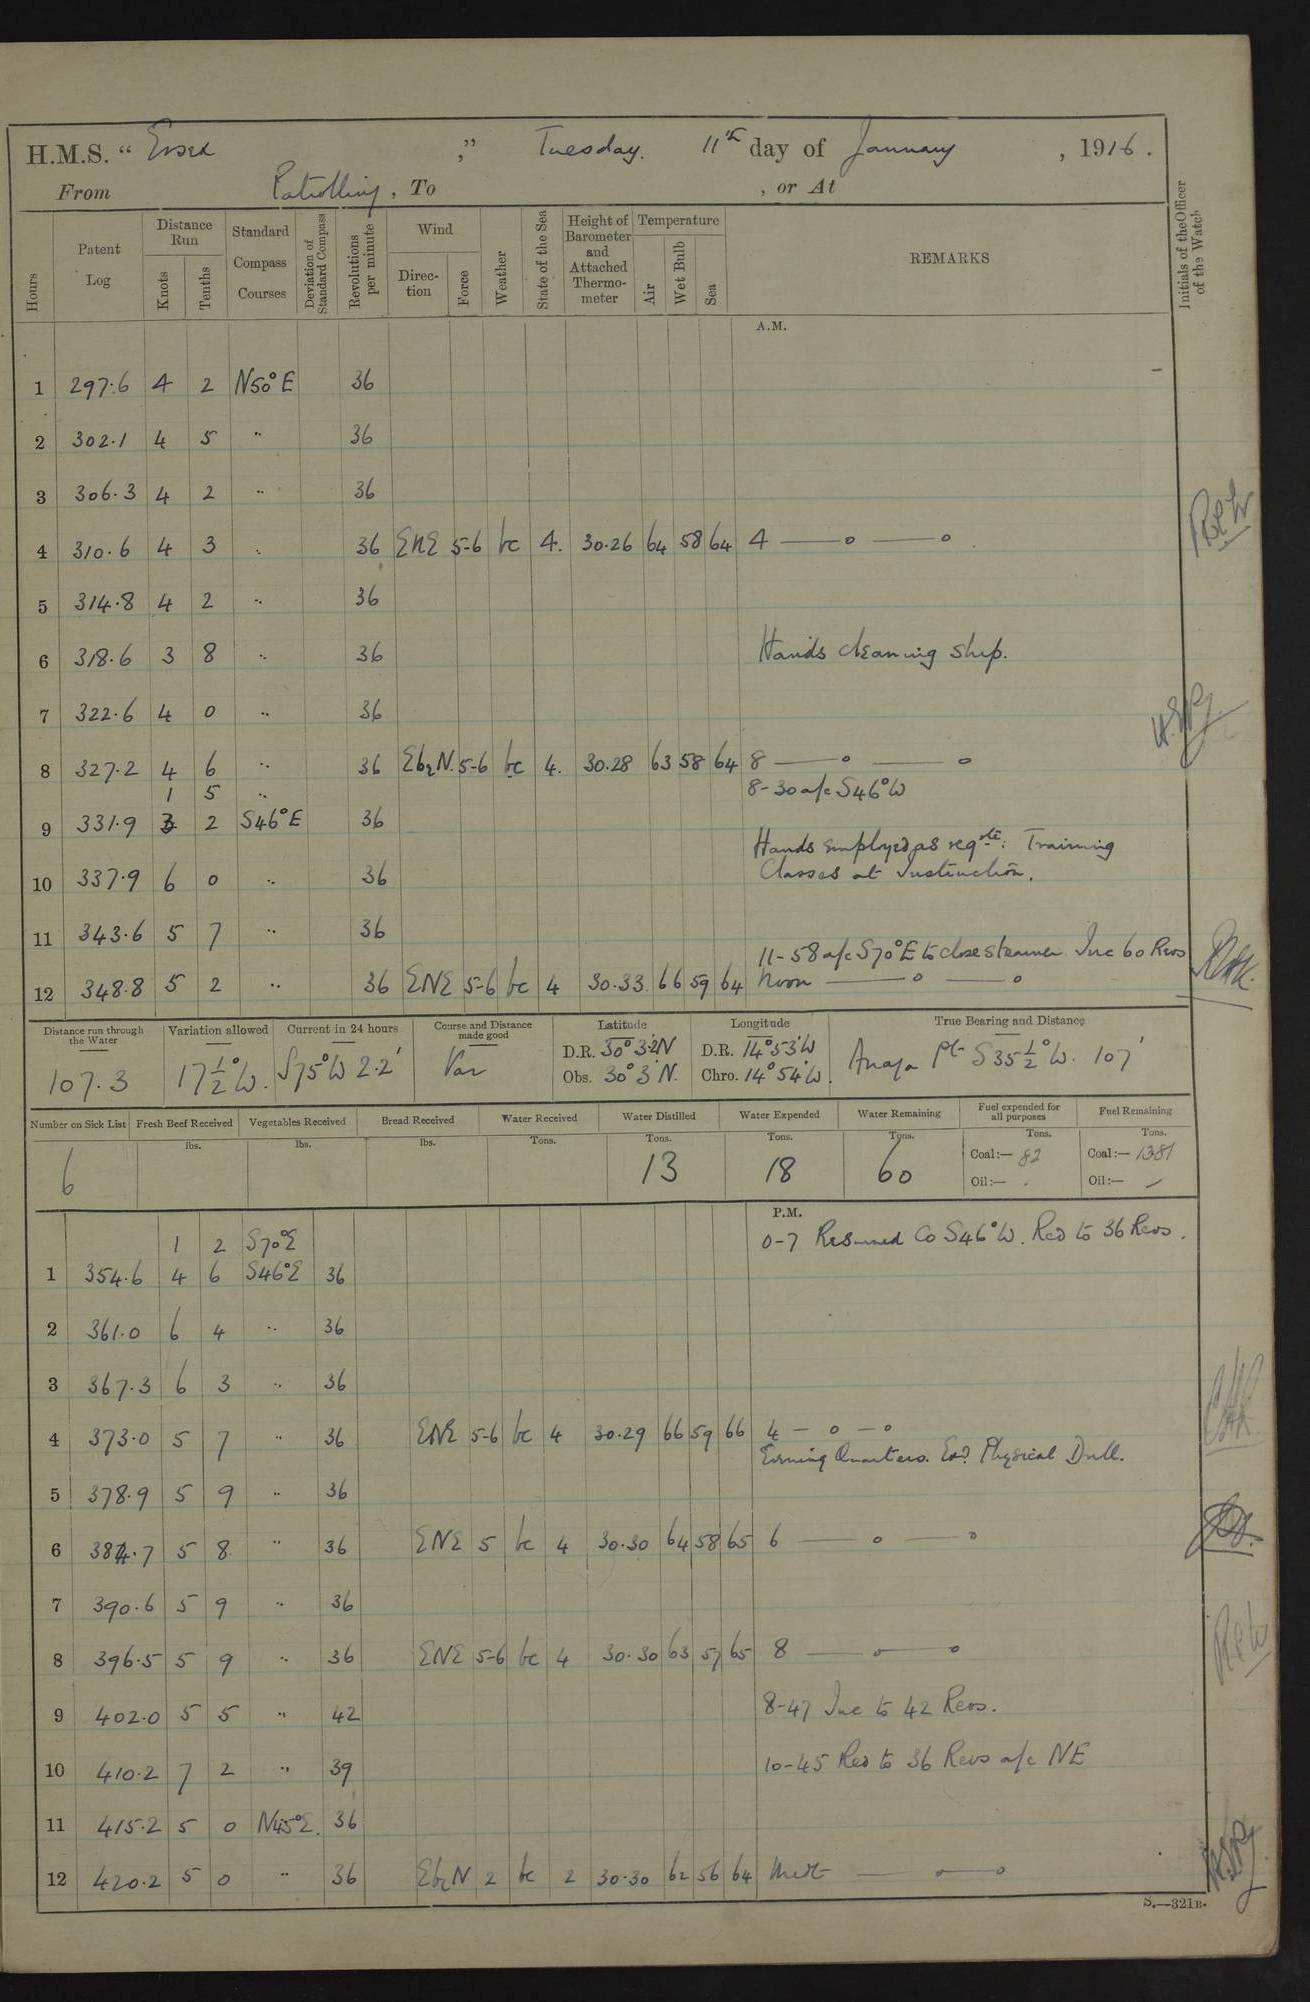 H.M.S. " Essex ," Tuesday. 11th day of January , 1916.
From Patrolling, To , or At
Hours
Patent Log
Distance Run
Knots
Tenths
Standard Compass Courses
Deviation of Standard Compass
Revolutions per minute
Wind
Direc-tion
Force
Weather
State of the Sea
Height of Barometer and Attached Thermo-meter
Temperature
Air
Wet Bulb
Sea
REMARKS
Initials of the Officer of the Watch
A.M.
1 297.6 4 2 N50°E 36
2 302.1 4 5 " 36
3 306.3 4 2 " 36
4 310.6 4 3 " 36 ENE 5-6 bc 4. 30.26 64 58 64 4 —— o —— o
5 314.8 4 2 " 36
6 318.6 3 8 " 36 Hands cleaning ship.
7 322.6 4 0 " 36
8 327.2 4 6 " 36 EbN. 5-6 bc 4. 30.28 63 58 64 8 —— o —— o
1 5 " 8-30 a/c S46°W
9 331.9 3 2 S46°E 36
Hands employed as reqste: Training
10 337.9 6 0 " 36 Classes at Instruction.
11 343.6 5 7 " 36
11-58 a/c S70°E to close steamer Inc 60 Revs
12 348.8 5 2 " 36 ENE 5-6 bc 4 30.33 66 59 64 Noon —— o —— o
Distance run through the Water
107.3
Variation allowed
17½°W.
Current in 24 hours
S75°W 2.2'
Course and Distance made good
Var
Latitude
D.R. 30° 32'N
Obs. 30° 3' N.
Longitude
D.R. 14° 53'W
Chro. 14° 54'W.
True Bearing and Distance
Anaga Pt S35½°W. 107'
Number on Sick List
6
Fresh Beef Received
lbs.
Vegetables Received
lbs.
Bread Received
lbs.
Water Received
Tons.
Water Distilled
Tons.
13
Water Expended
Tons.
18
Water Remaining
Tons.
60
Fuel expended for all purposes
Tons.
Coal:— 82
Oil:—
Fuel Remaining
Tons.
Coal:— 1381
Oil:— –
P.M.
1 2 S70°E 0-7 Resumed Co S46°W. Red to 36 Revs.
1 354.6 4 6 S46°E 36
2 361.0 6 4 " 36
3 367.3 6 3 " 36
4 373.0 5 7 " 36 ENE 5-6 bc 4 30.29 66 59 66 4 — o — o
Evening Quarters. Exd Physical Drill.
5 378.9 5 9 " 36
6 384.7 5 8 " 36 ENE 5 bc 4 30.30 64 58 65 6 —— o —— o
7 390.6 5 9 " 36
8 396.5 5 9 " 36 ENE 5-6 bc 4 30.30 63 57 65 8 —— o —— o
9 402.0 5 5 " 42 8-47 Inc to 42 Revs.
10 410.2 7 2 " 39 10-45 Red to 36 Revs a/c NE
11 415.2 5 0 N45°E. 36
12 420.2 5 0 " 36 EbN 2 bc 2 30.30 62 56 64 Midt —— o —— o
S.—321B.